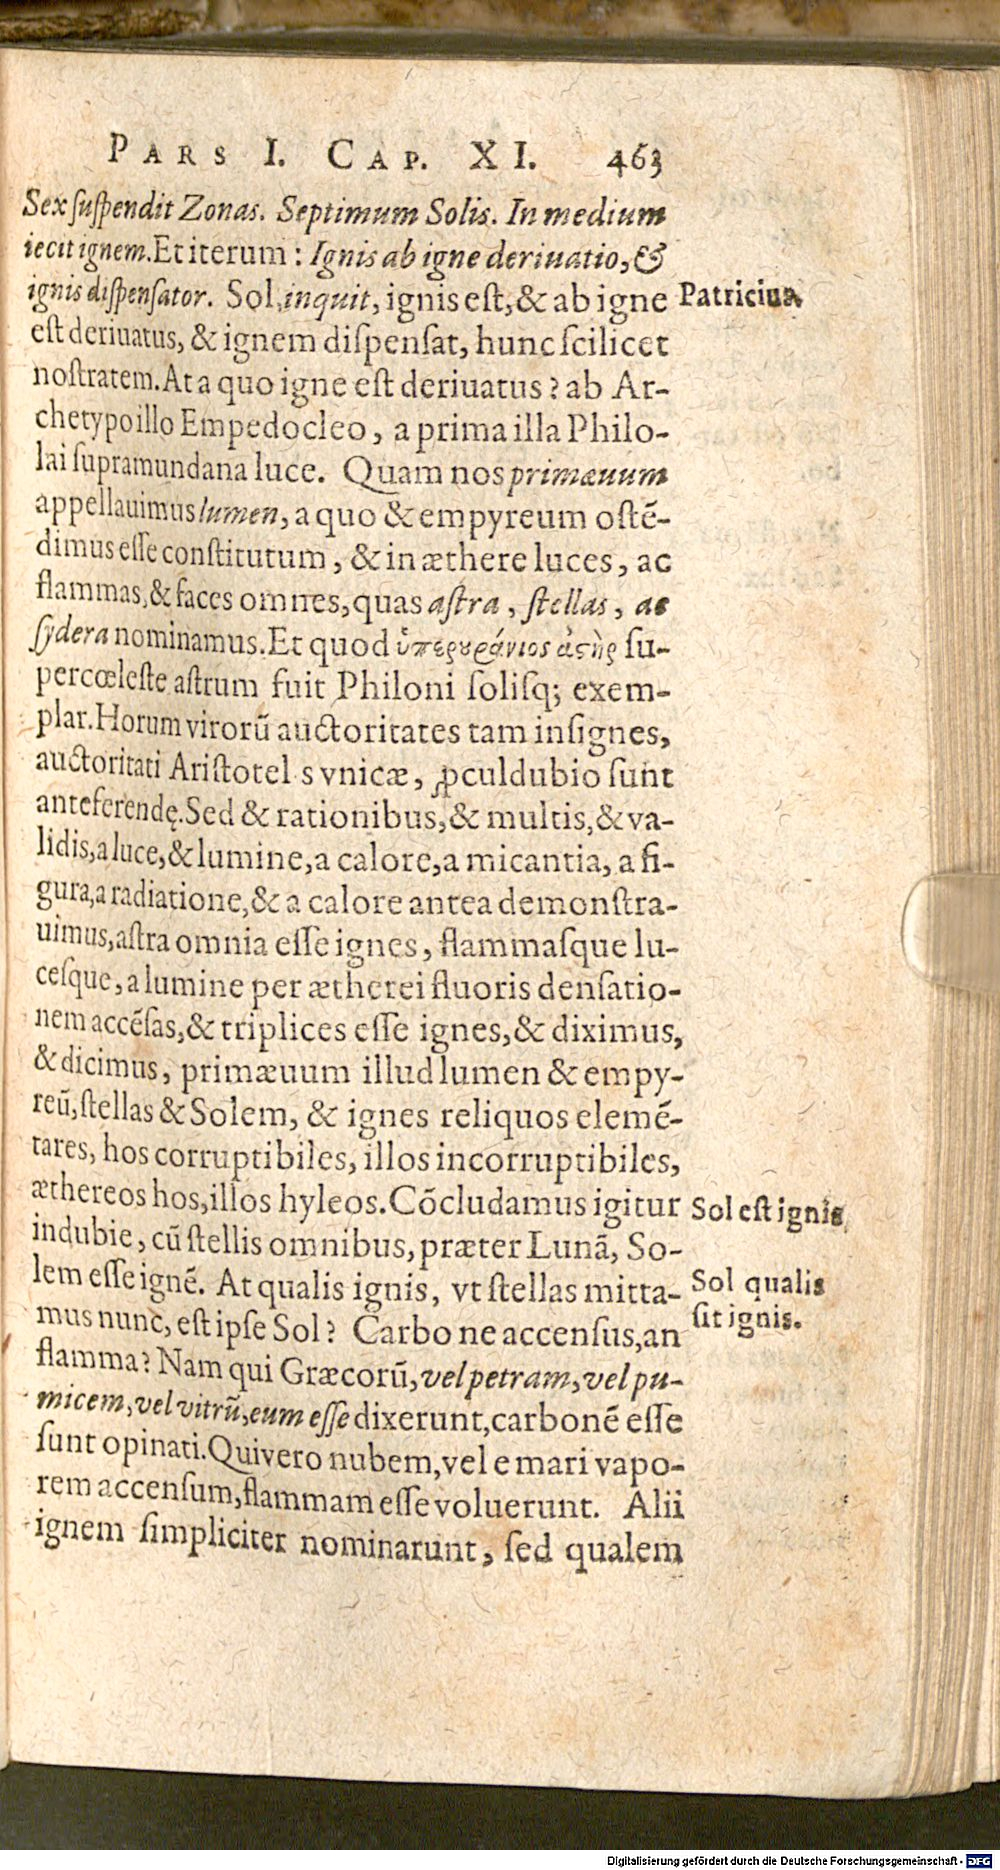 PARS I. CAP. XI. 463
Sex suſpendit Zonas. Septimum Solis. In medium
iecit ignem. Et iterum: Ignis ab igne deriuatio, &
ignis diſpenſator. Sol, inquit, ignis eſt, & ab igne
Patricius.
eſt deriuatus, & ignem diſpenſat, hunc ſcilicet
noſtratem. At a quo igne eſt deriuatus? ab Ar-
chetypo illo Empedocleo, a prima illa Philo-
lai ſupramundana luce. Quam nos primæuum
appellauimus lumen, a quo & empyreum oſtẽ-
dimus eſſe conſtitutum, & in æthere luces, ac
flammas, & faces omnes, quas aſtra, ſtellas, ac
ſydera nominamus. Et quod ὑπερουράνιος ἀστὴρ ſu-
percœleſte aſtrum fuit Philoni ſoliſq; exem-
plar. Horum virorũ auctoritates tam inſignes,
auctoritati Ariſtotel s vnicæ, ꝓculdubio ſunt
anteferendę. Sed & rationibus, & multis, & va-
lidis, a luce, & lumine, a calore, a micantia, a fi-
gura, a radiatione, & a calore antea demonſtra-
uimus, aſtra omnia eſſe ignes, flammaſque lu-
ceſque, a lumine per ætherei fluoris denſatio-
nem accẽſas, & triplices eſſe ignes, & diximus,
& dicimus, primæuum illud lumen & empy-
reũ, ſtellas & Solem, & ignes reliquos elemẽ-
tares, hos corruptibiles, illos incorruptibiles,
æthereos hos, illos hyleos. Cõcludamus igitur
Sol eſt ignis,
indubie, cũ ſtellis omnibus, præter Lunã, So-
lem eſſe ignẽ. At qualis ignis, vt ſtellas mitta-
Sol qualis
ſit ignis.
mus nunc, eſt ipſe Sol? Carbo ne accenſus, an
flamma? Nam qui Græcorũ, vel petram, vel pu-
micem, vel vitrũ, eum eſſe dixerunt, carbonẽ eſſe
ſunt opinati. Qui vero nubem, vel e mari vapo-
rem accenſum, flammam eſſe voluerunt. Alii
ignem ſimpliciter nominarunt, ſed qualem
Digitalisierung gefördert durch die Deutsche Forschungsgemeinschaft - DFG